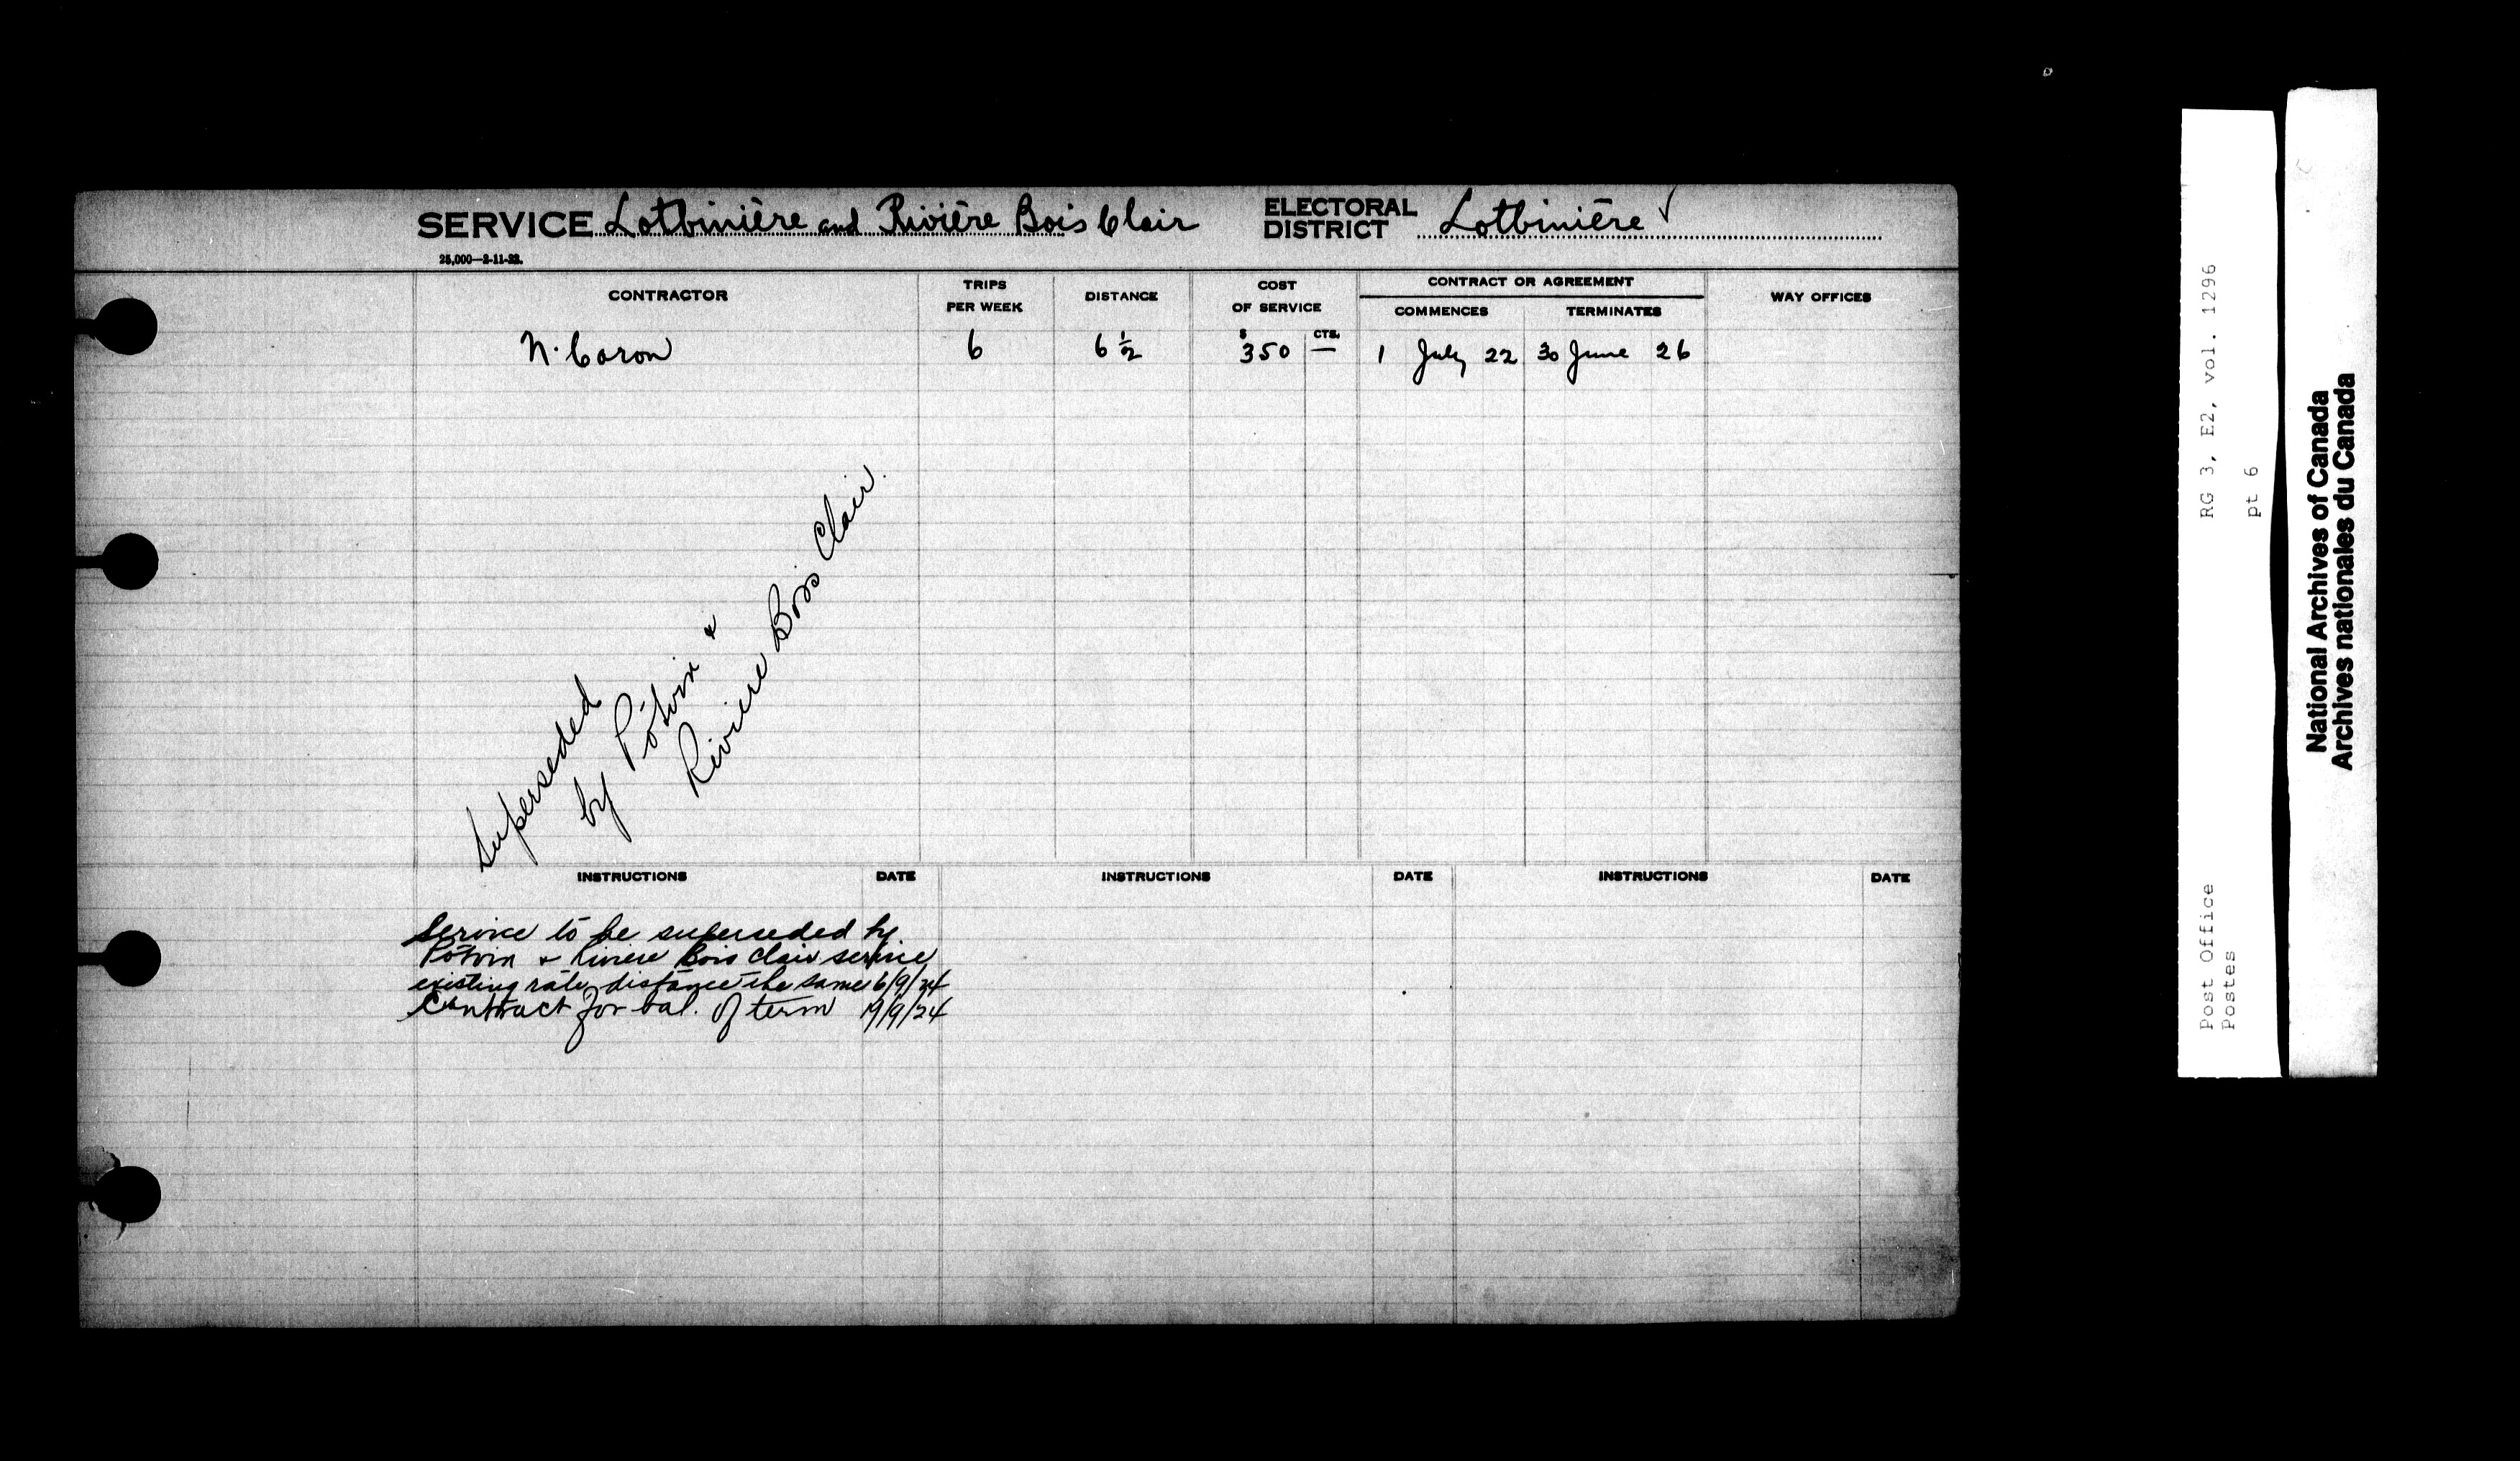 SERVICE Lotbinière and Rivière Bois Clair
ELECTORAL DISTRICT Lotbinière ✓
25,000—2-11-22.
CONTRACTOR
TRIPS PER WEEK
DISTANCE
COST OF SERVICE
CONTRACT OR AGREEMENT
COMMENCES
TERMINATES
WAY OFFICES
$ CTS.
N. Caron 6 6 1/2 350 — 1 July 22 30 June 26
Superseded
by Potvin &
Riviere Bois Clair.
INSTRUCTIONS DATE INSTRUCTIONS DATE INSTRUCTIONS DATE
Service to be superseded by
Potvin & Riviere Bois Clair service
existing rate, distance the same 6/9/24
Contract for bal. of term 19/9/24
RG 3, E2, vol. 1296
pt 6
Post Office
Postes
National Archives of Canada
Archives nationales du Canada